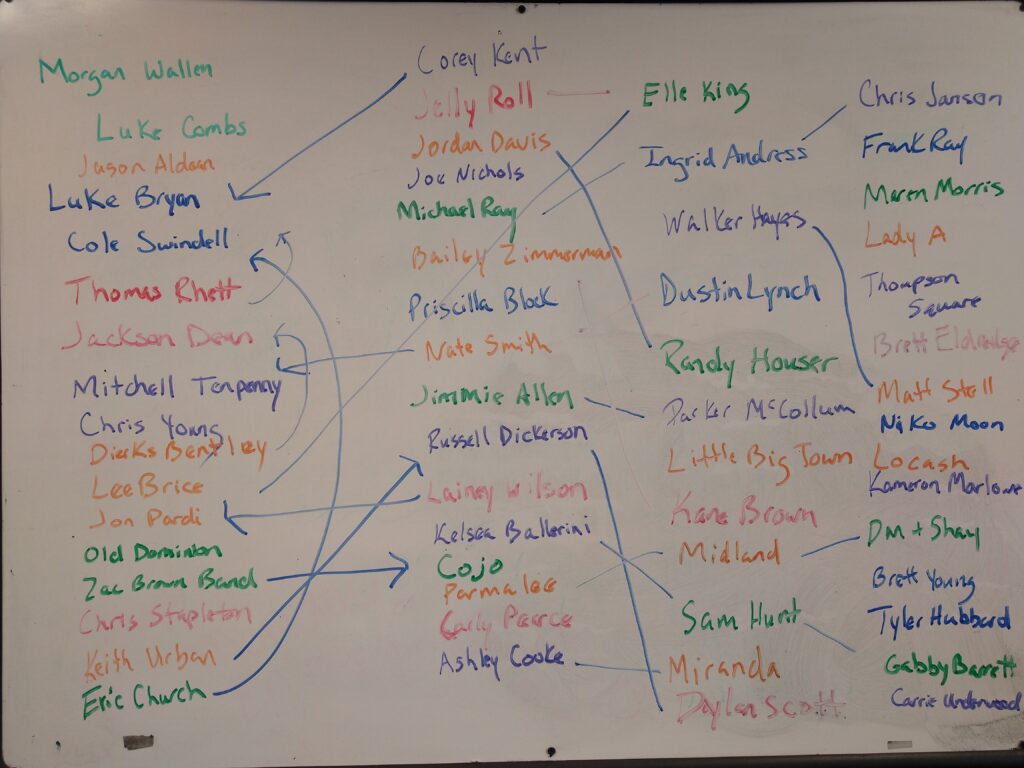 Morgan Wallen
Luke Combs
Jason Aldean
Luke Bryan
Cole Swindell
Thomas Rhett
Jackson Dean
Mitchell Tenpenny
Chris Young
Dierks Bentley
Lee Brice
Jon Pardi
Old Dominion
Zac Brown Band
Chris Stapleton
Keith Urban
Eric Church
Corey Kent
Jelly Roll
Jordan Davis
Joe Nichols
Michael Ray
Bailey Zimmerman
Priscilla Block
Nate Smith
Jimmie Allen
Russell Dickerson
Lainey Wilson
Kelsea Ballerini
Cojo
Parmalee
Carly Pearce
Ashley Cooke
Elle King
Ingrid Andress
Walker Hayes
Dustin Lynch
Randy Houser
Parker McCollum
Little Big Town
Kane Brown
Midland
Sam Hunt
Miranda
Daylan Scott
Chris Janson
Frank Ray
Maren Morris
Lady A
Thompson
Square
Brett Eldredge
Matt Stell
Niko Moon
Locash
Kameron Marlowe
Dm + Shay
Brett Young
Tyler Hubbard
Gabby Barrett
Carrie Underwood